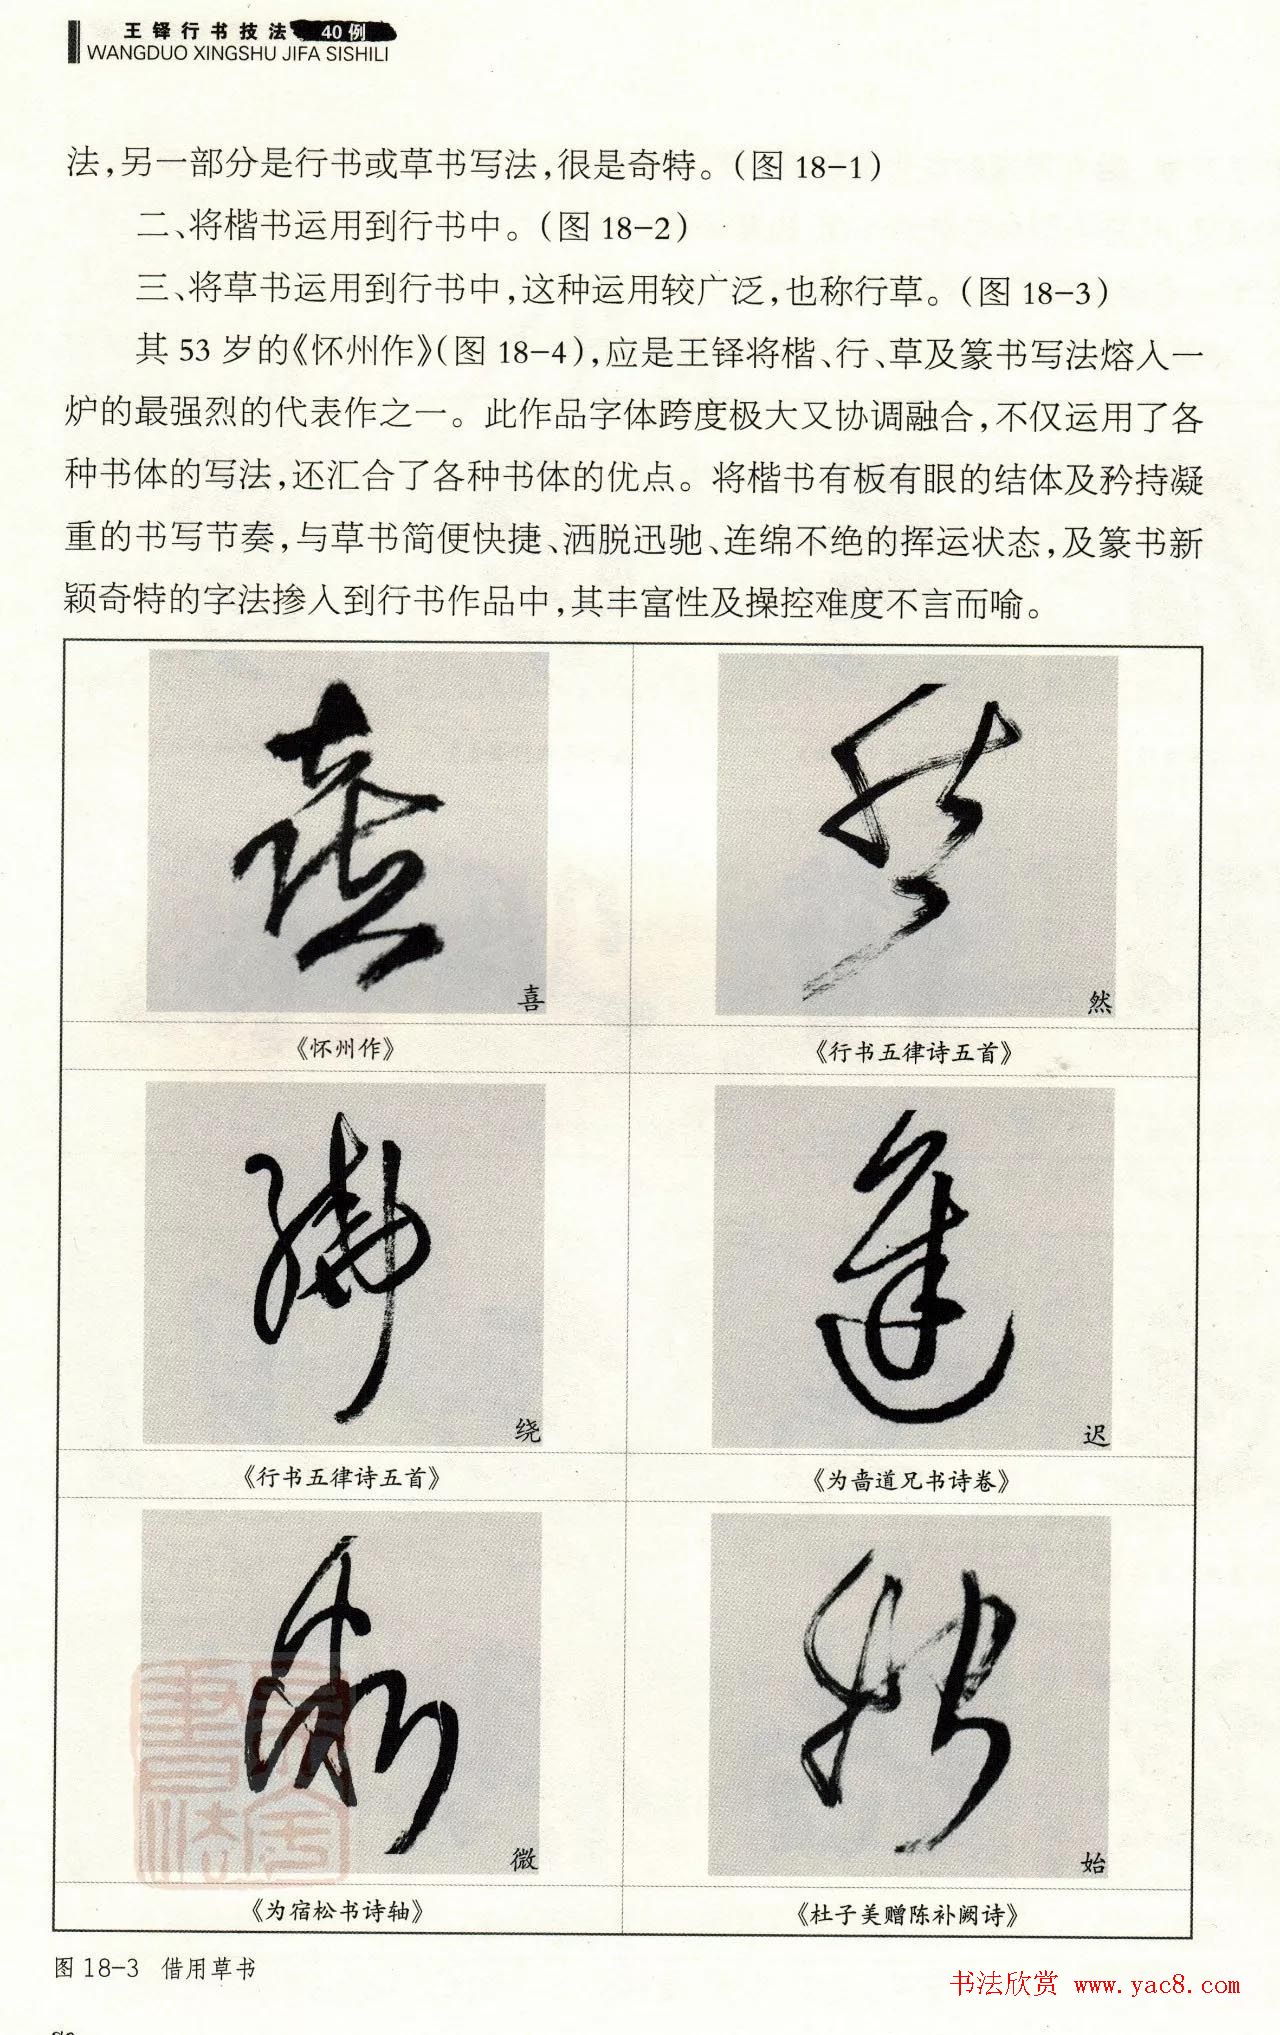 王铎行书技法 40例
WANGDUO XINGSHU JIFA SISHILI
法,另一部分是行书或草书写法,很是奇特。(图 18-1)
二、将楷书运用到行书中。(图 18-2)
三、将草书运用到行书中,这种运用较广泛,也称行草。(图 18-3)
其 53 岁的《怀州作》(图 18-4),应是王铎将楷、行、草及篆书写法熔入一
炉的最强烈的代表作之一。此作品字体跨度极大又协调融合,不仅运用了各
种书体的写法,还汇合了各种书体的优点。将楷书有板有眼的结体及矜持凝
重的书写节奏,与草书简便快捷、洒脱迅驰、连绵不绝的挥运状态,及篆书新
颖奇特的字法掺入到行书作品中,其丰富性及操控难度不言而喻。
喜
然
《怀州作》
《行书五律诗五首》
绕
迟
《行书五律诗五首》
《为啬道兄书诗卷》
微
始
《为宿松书诗轴》
《杜子美赠陈补阙诗》
图 18-3 借用草书
书法欣赏 www.yac8.com